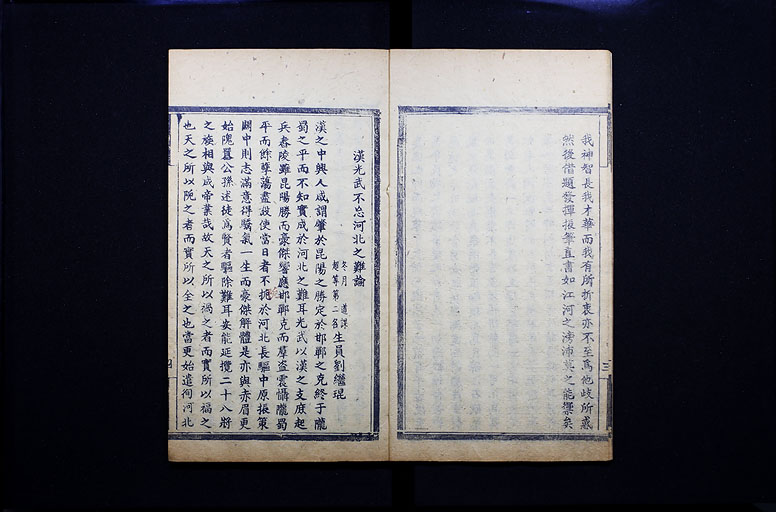 我神智長我才華而我有所折衷亦不至為他岐所惑
然後借題發揮振筆直書如江河之滂沛莫之能禦矣
三
漢光武不忘河北之難論
冬月道課
超等第二名生員劉繼琨
漢之中興人咸謂肇於昆陽之勝定於邯鄲之克終于隴
蜀之平而不知實成於河北之難耳光武以漢之支庶起
兵舂陵雖昆陽勝而豪傑響應邯鄲克而羣盜震懾隴蜀
平而餘孽蕩盡設使當日者不扼於河北長驅中原振策
關中則志滿意得驕氣一生而豪傑解體是亦與赤眉更
始隗囂公孫述徒為賢者驅除難耳安能延攬二十八將
之旋相與成帝業哉故天之所以禍之者而實所以福之
也天之所以阨之者而實所以全之也當更始遣徇河北
四